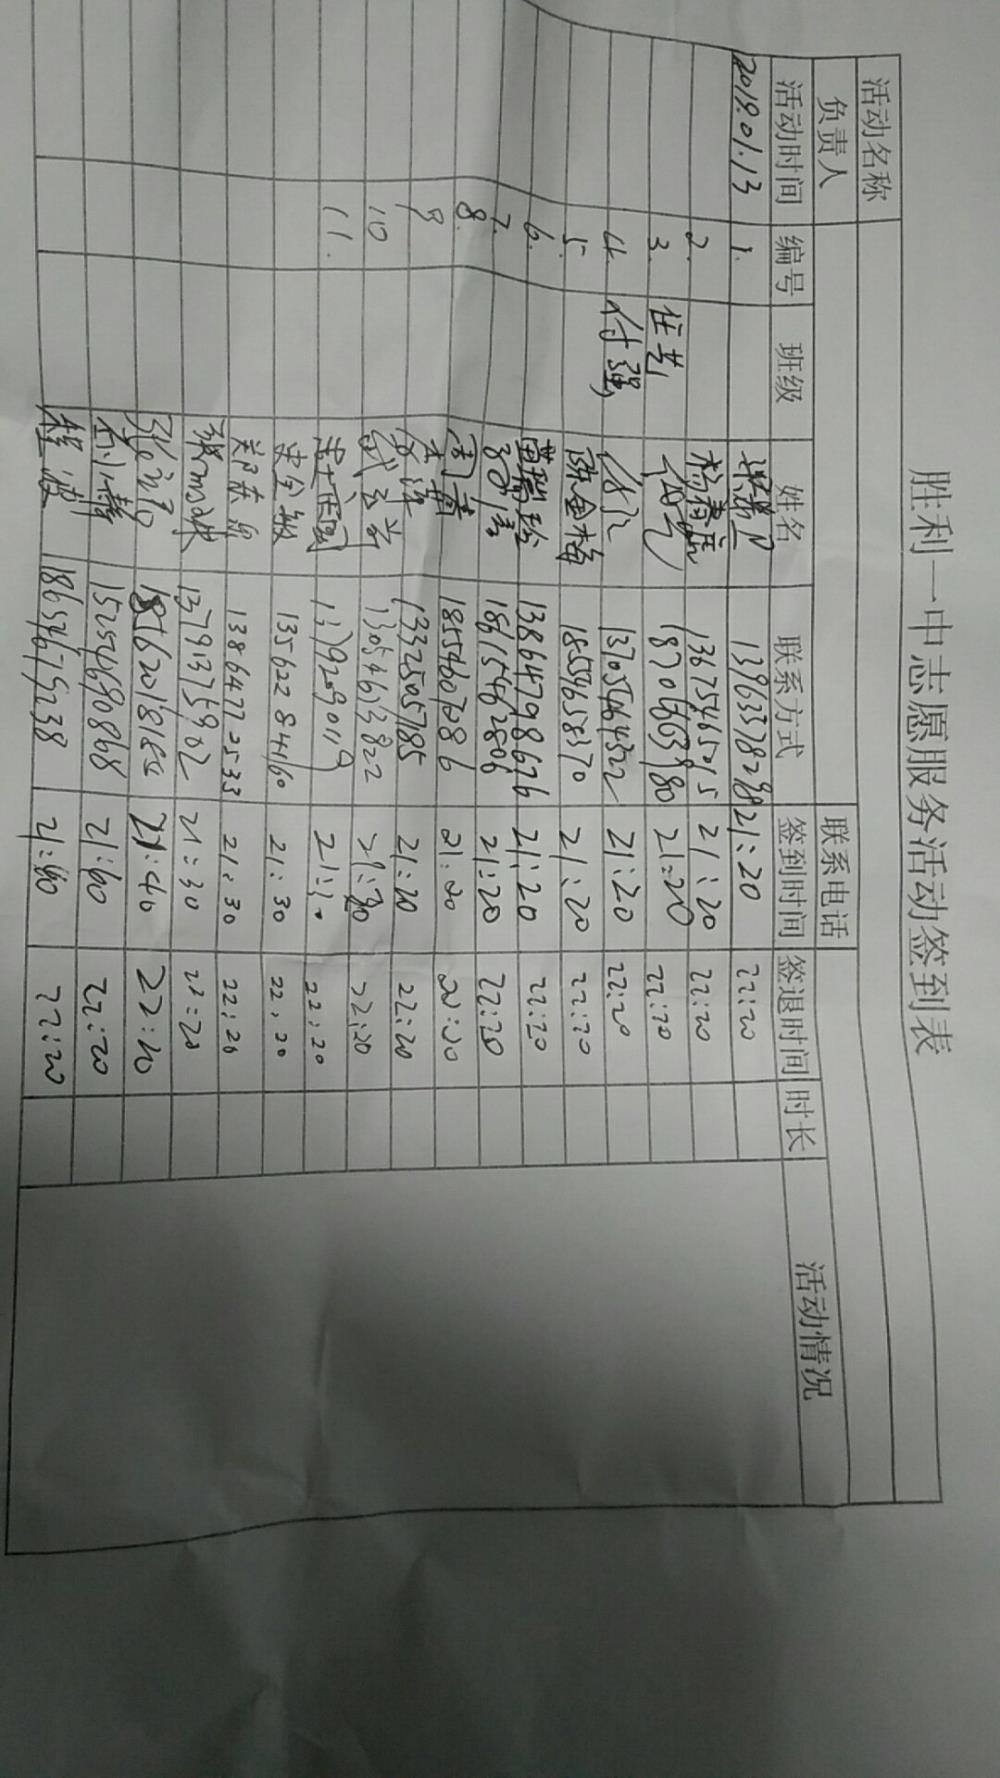 胜利一中志愿服务活动签到表
活动名称
负责人 联系电话
活动时间 编号 班级 姓名 联系方式 签到时间 签退时间 时长 活动情况
2019.01.13 1. 13963378298 21:20 22:20
2. 杨春霞 13675465015 21:20 22:20
3. 任艺 18701663980 21:20 22:20
4. 付强 13705464322 21:20 22:20
5. 陈金梅 18559658370 21:20 22:20
6. 苗瑞玲 13864798676 21:20 22:20
7. 18615462806 21:20 22:20
8. 周青 18554607086 21:20 22:20
9 13325057185 21:20 22:20
10 13054613822 21:30 22:20
11. 13792090119 21:30 22:20
史全敏 13562284160 21:30 22:20
13864772533 21:30 22:20
13791373902 21:30 22:20
18562018182 21:40 22:20
石小静 15254680868 21:60 22:20
程波 18654675238 21:60 22:20